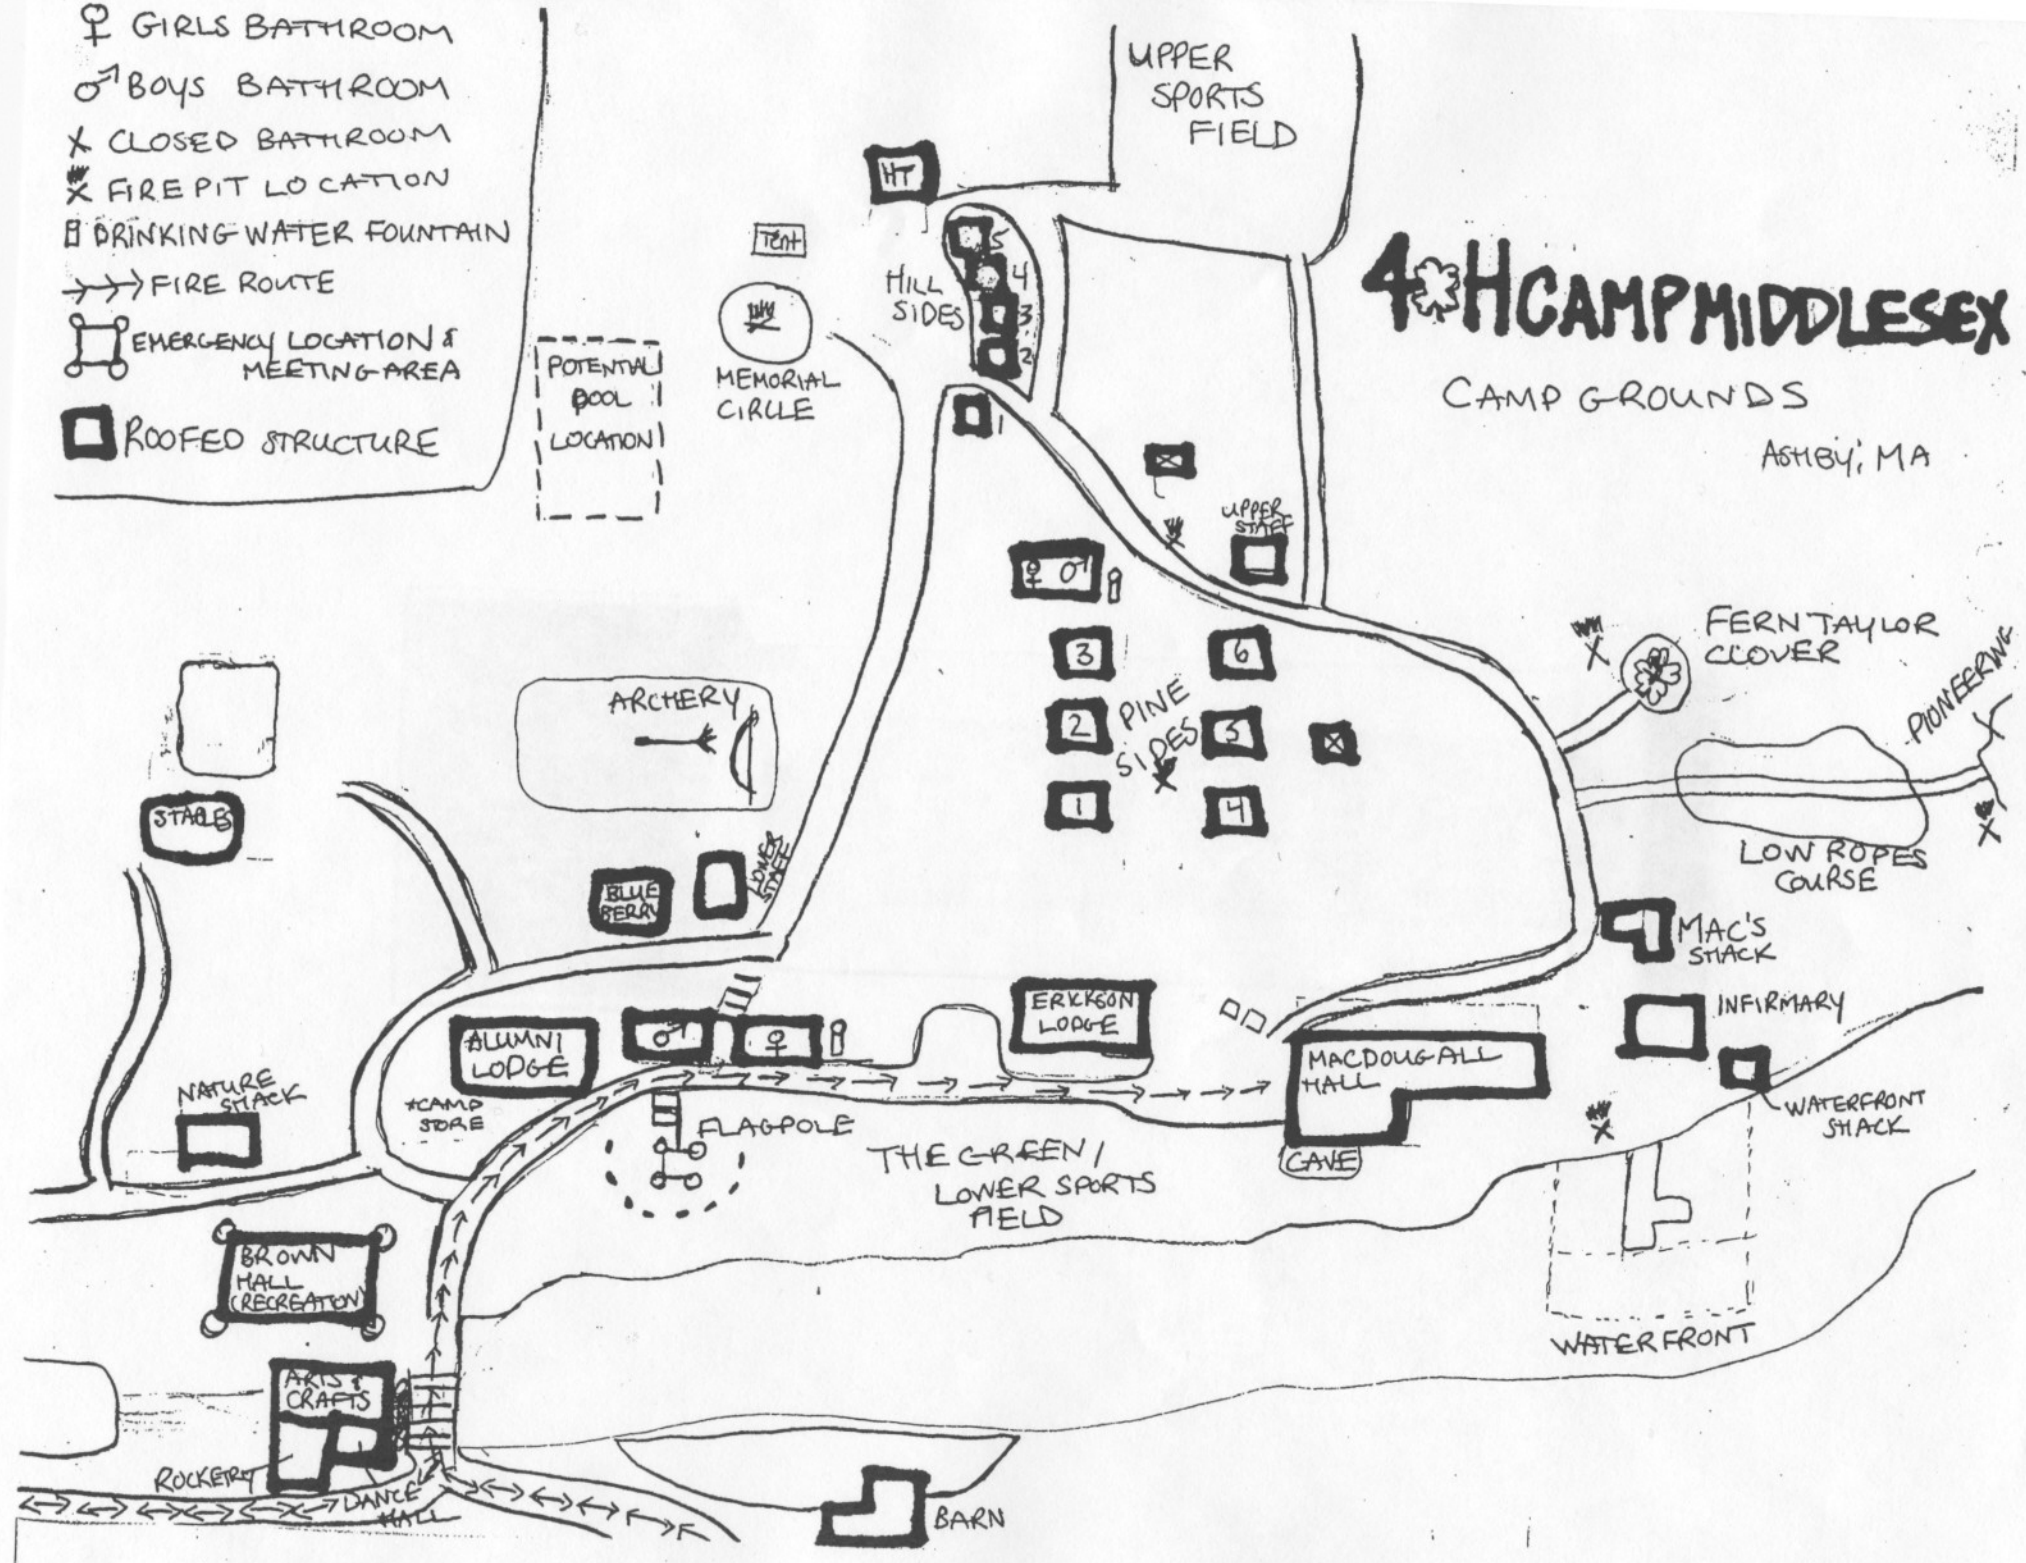 GIRLS BATHROOM
BOYS BATHROOM
X CLOSED BATHROOM
FIRE PIT LOCATION
DRINKING WATER FOUNTAIN
FIRE ROUTE
EMERGENCY LOCATION &
MEETING AREA
ROOFED STRUCTURE
UPPER
SPORTS
FIELD
4 H CAMP MIDDLESEX
CAMP GROUNDS
ASHBY, MA
HT
Tent
HILL
SIDES
5
4
3
2
1
MEMORIAL
CIRCLE
POTENTIAL
POOL
LOCATION
UPPER
STAFF
3
2
1
PINE
SIDES
6
5
4
FERN TAYLOR
CLOVER
PIONEERING
LOW ROPES
COURSE
ARCHERY
STABLES
BLUE
BERRY
LOWER
STAFF
MAC'S
SHACK
INFIRMARY
WATERFRONT
SHACK
ERICKSON
LODGE
MACDOUGALL
HALL
CAVE
ALUMNI
LODGE
*CAMP
STORE
NATURE
SHACK
FLAGPOLE
THE GREEN /
LOWER SPORTS
FIELD
BROWN
HALL
(RECREATION)
WATERFRONT
ARTS &
CRAFTS
ROCKETRY
DANCE
HALL
BARN